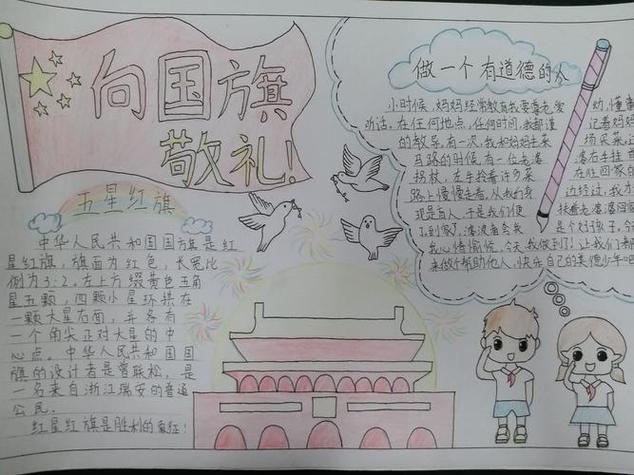 向国旗
敬礼!
五星红旗
中华人民共和国国旗是红
星红旗，旗面为红色，长宽比
例为3:2。左上方缀黄色五角
星五颗，四颗小星环拱在
一颗大星右面，并各有
一个角尖正对大星的中
心点。中华人民共和国国
旗的设计者是曾联松，是
一名来自浙江瑞安的普通
公民。
红星红旗是胜利的象征!
做一个有道德的人
小时候，妈妈经常教育我要尊老爱幼，懂事
听话，在任何地点，任何时间，我都谨记着妈妈
的教导。有一次，我和妈妈去菜场买菜，
马路的时候，有一位老婆婆右手拄
拐杖，左手拎着许多菜，在往回家的
路上慢慢走着，从我的身边经过，我
现是盲人，于是我们便扶着老婆婆回
了到家，婆婆夸会我是个好孩子，
我心情愉悦，今天我做到了!让我们都
来做个帮助他人，快乐自己的美德少年吧